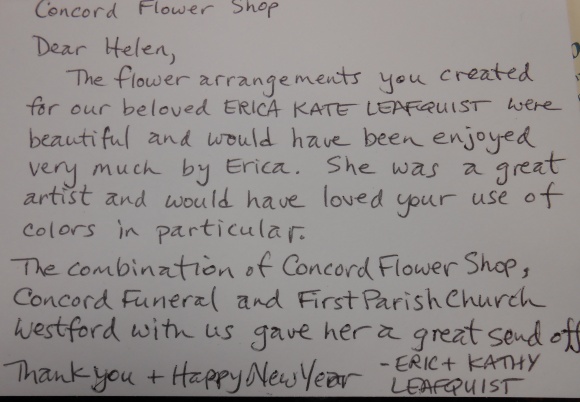 Concord Flower Shop
Dear Helen,
The flower arrangements you created
for our beloved ERICA KATE LEAFQUIST were
beautiful and would have been enjoyed
very much by Erica. She was a great
artist and would have loved your use of
colors in particular.
The combination of Concord Flower Shop,
Concord Funeral and First Parish Church
Westford with us gave her a great send off
Thank you + Happy New Year - ERIC + KATHY
LEAFQUIST